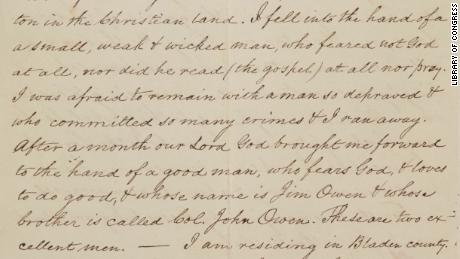 ton in the Christian land. I fell into the hand of a
a small, weak & wicked man, who feared not God
at all, nor did he read (the gospel) at all nor pray.
I was afraid to remain with a man so depraved &
who committed so many crimes & I ran away.
After a month our Lord God brought me forward
to the hand of a good man, who fears God, & loves
to do good, & whose name is Jim Owen & whose
brother is called Col. John Owen. These are two ex-
cellent men. — I am residing in Bladen county.
LIBRARY OF CONGRESS